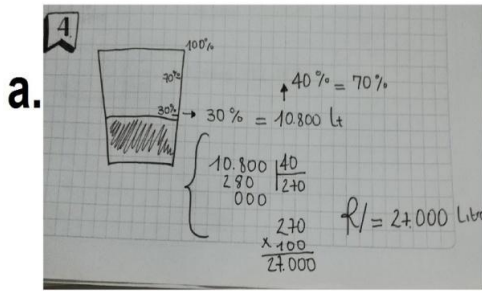 4
a.
100%
70%
↑ 40% = 70%
30% → 30% = 10.800 Lt
10.800 |40
280 270
000
270
x 100
27.000
R/= 27.000 Litr